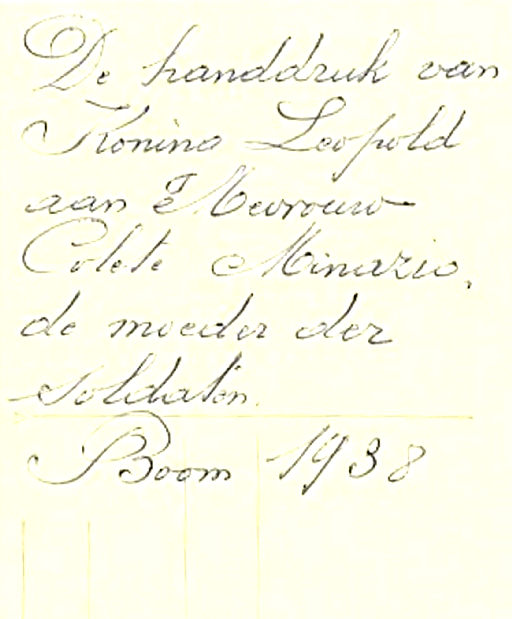 De handdruk van
Koning Leopold
aan Mevrouw
Colete Minazio,
de moeder der
soldaten.
Boom 1938